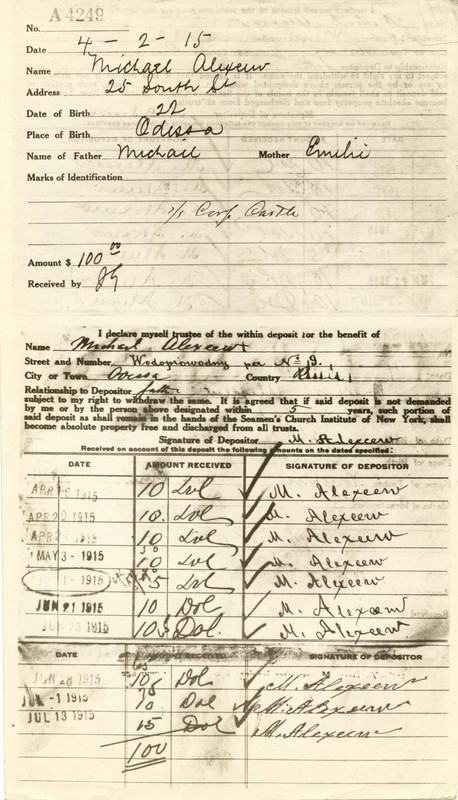 No. A 4249
Date 4 - 2 - 15
Name Michael Alexeew
Address 25 South St
Date of Birth 22
Place of Birth Odissa
Name of Father Michail Mother Emilie
Marks of Identification
S/S Corf Castle
Amount $ 100 00
Received by
I declare myself trustee of the within deposit for the benefit of
Name Michael Alexeew
Street and Number Wodoprowodny per No 9.
City or Town Odissa Country
Relationship to Depositor father
subject to my right to withdraw the same. It is agreed that if said deposit is not demanded
by me or by the person above designated within 5 years, such portion of
said deposit as shall remain in the hands of the Seamen's Church Institute of New York, shall
become absolute property free and discharged from all trusts.
Signature of Depositor M. Alexeew
Received on account of this deposit the following amounts on the dates specified:
DATE AMOUNT RECEIVED SIGNATURE OF DEPOSITOR
APR 1915 10 Dol M. Alexeew
APR 20 1915 10. Dol M. Alexeew
APR 1915 10 Dol M. Alexeew
MAY 3 - 1915 10 Dol M. Alexeew
1 - 1915 5 Dol M. Alexeew
JUN 21 1915 10 Dol M. Alexeew
JUN 23 1915 10 Dol. M. Alexeew
DATE AMOUNT RECEIVED SIGNATURE OF DEPOSITOR
JUN 28 1915 10 Dol M. Alexeew
JUL -1 1915 10 Dol M. Alexeew
JUL 13 1915 15 Dol M. Alexeew
100